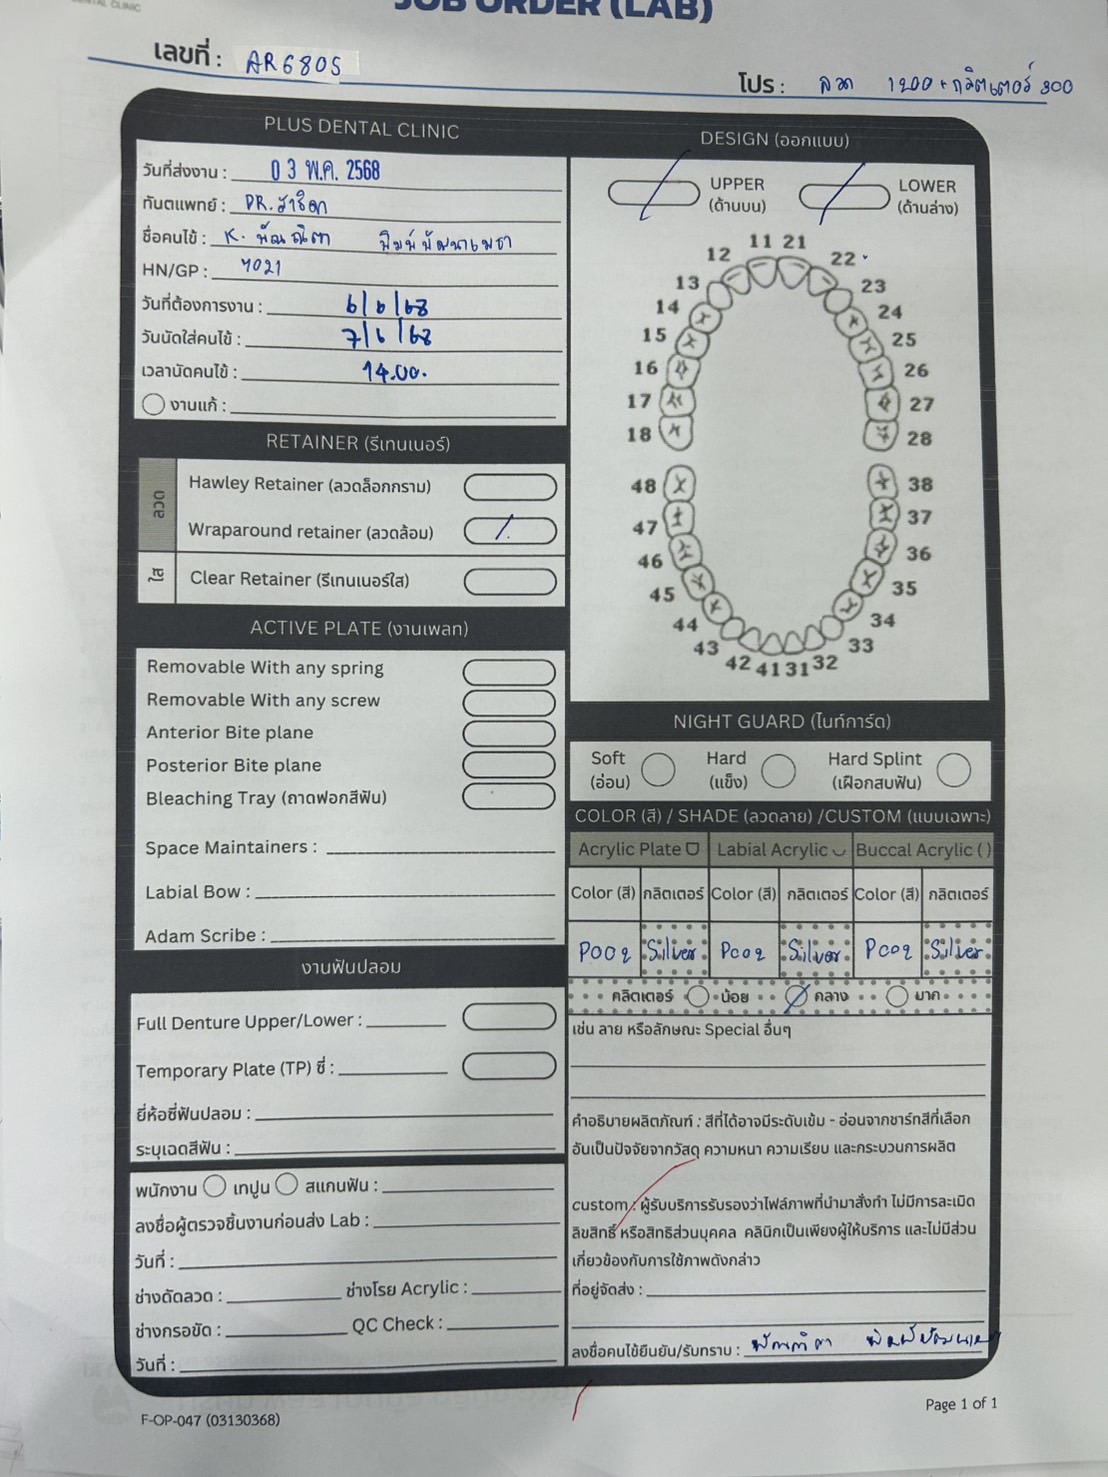 JOB ORDER (LAB)
เลขที่ : AR6805
โปร : ลวด 1200 + กลิตเตอร์ 300
PLUS DENTAL CLINIC
วันที่ส่งงาน : 03 พ.ค. 2568
ทันตแพทย์ : DR.
ชื่อคนไข้ : K.
HN/GP : 4021
วันที่ต้องการงาน : 6/6/68
วันนัดใส่คนไข้ : 7/6/68
เวลานัดคนไข้ : 14.00.
งานแก้ :
RETAINER (รีเทนเนอร์)
ลวด
Hawley Retainer (ลวดล็อกกราม)
Wraparound retainer (ลวดล้อม)
ใส
Clear Retainer (รีเทนเนอร์ใส)
ACTIVE PLATE (งานเพลท)
Removable With any spring
Removable With any screw
Anterior Bite plane
Posterior Bite plane
Bleaching Tray (ถาดฟอกสีฟัน)
Space Maintainers :
Labial Bow :
Adam Scribe :
งานฟันปลอม
Full Denture Upper/Lower :
Temporary Plate (TP) ซี่ :
ยี่ห้อซี่ฟันปลอม :
ระบุเฉดสีฟัน :
พนักงาน เทปูน สแกนฟัน :
ลงชื่อผู้ตรวจชิ้นงานก่อนส่ง Lab :
วันที่ :
ช่างดัดลวด : ช่างโรย Acrylic :
ช่างกรอขัด : QC Check :
วันที่ :
F-OP-047 (03130368)
DESIGN (ออกแบบ)
UPPER LOWER
(ด้านบน) (ด้านล่าง)
11 21
12 22
13 23
14 24
15 25
16 26
17 27
18 28
48 38
47 37
46 36
45 35
44 34
43 33
42 41 31 32
NIGHT GUARD (ไนท์การ์ด)
Soft Hard Hard Splint
(อ่อน) (แข็ง) (เฝือกสบฟัน)
COLOR (สี) / SHADE (ลวดลาย) /CUSTOM (แบบเฉพาะ)
Acrylic Plate Labial Acrylic Buccal Acrylic ( )
Color (สี) กลิตเตอร์ Color (สี) กลิตเตอร์ Color (สี) กลิตเตอร์
P002 Silver P002 Silver P002 Silver
กลิตเตอร์ น้อย กลาง มาก
เช่น ลาย หรือลักษณะ Special อื่นๆ
คำอธิบายผลิตภัณฑ์ : สีที่ได้อาจมีระดับเข้ม - อ่อนจากชาร์ทสีที่เลือก
อันเป็นปัจจัยจากวัสดุ ความหนา ความเรียบ และกระบวนการผลิต
custom : ผู้รับบริการรับรองว่าไฟล์ภาพที่นำมาสั่งทำ ไม่มีการละเมิด
ลิขสิทธิ์ หรือสิทธิส่วนบุคคล คลินิกเป็นเพียงผู้ให้บริการ และไม่มีส่วน
เกี่ยวข้องกับการใช้ภาพดังกล่าว
ที่อยู่จัดส่ง :
ลงชื่อคนไข้ยืนยัน/รับทราบ :
Page 1 of 1